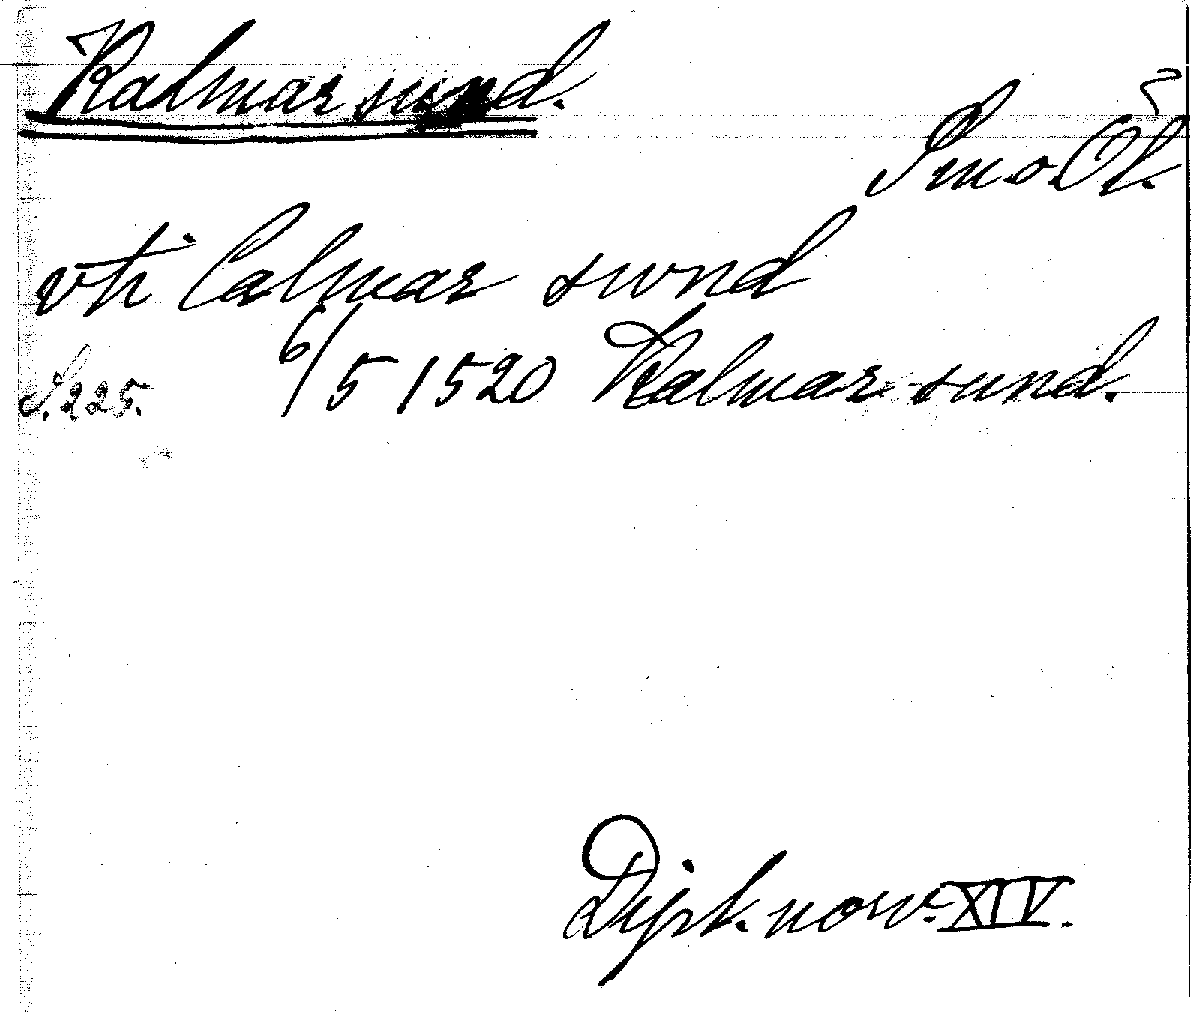 Kalmar sund.
Sm.o.Öl.
vti Calmar swnd
S.225. 6/5 1520 Kalmar sund.
Dipl. norv. XIV.